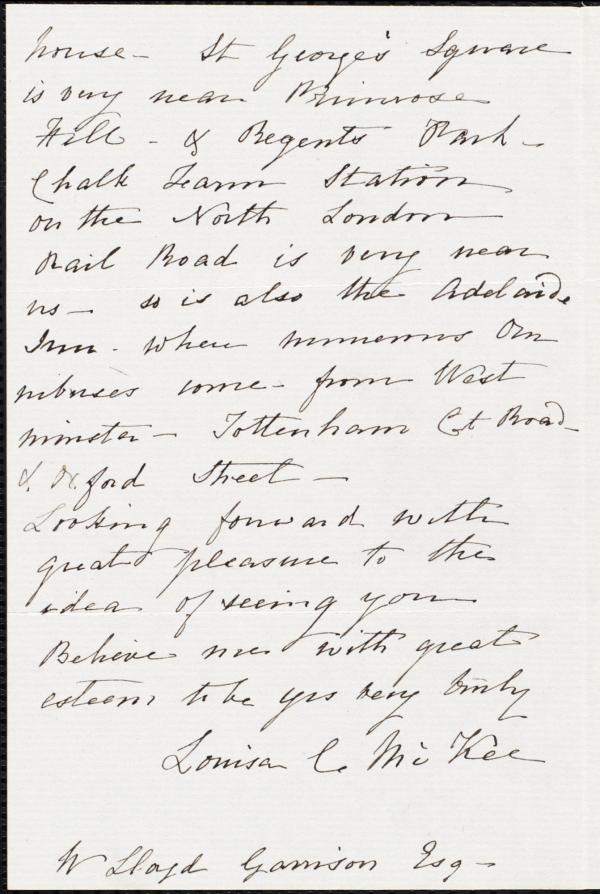 house - St George's Square
is very near Primrose
Hill - & Regents Park -
Chalk Farm Station
on the North London
Rail Road is very near
us - so is also the Adelaide
Inn - where numerous Om
nibuses come - from West
minster - Tottenham Ct Road -
& Oxford Street -
Looking forward with
great pleasure to the
idea of seeing you
Believe me with great
esteem to be yrs very truly
Louisa C McKee
W Lloyd Garrison Esq -